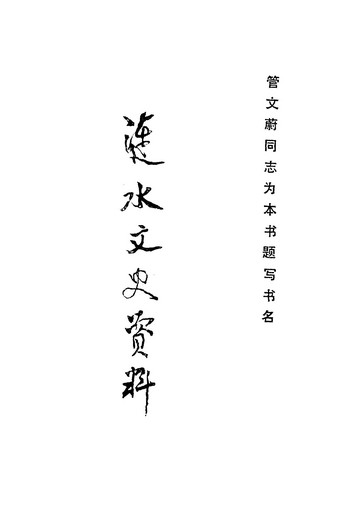 管文蔚同志为本书题写书名
涟水文史资料